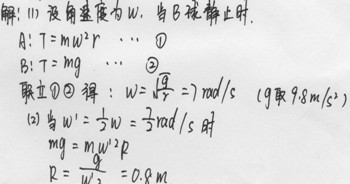 解: (1) 设角速度为 w. 当 B 球静止时.
A: T = mw²r ··· ①
B: T = mg ··· ②
联立①② 得: w = √(g/r) = 7 rad/s (g取 9.8 m/s²)
(2) 当 w' = 1/2 w = 7/2 rad/s 时
mg = m w'² R
R = g/w'² = 0.8 m